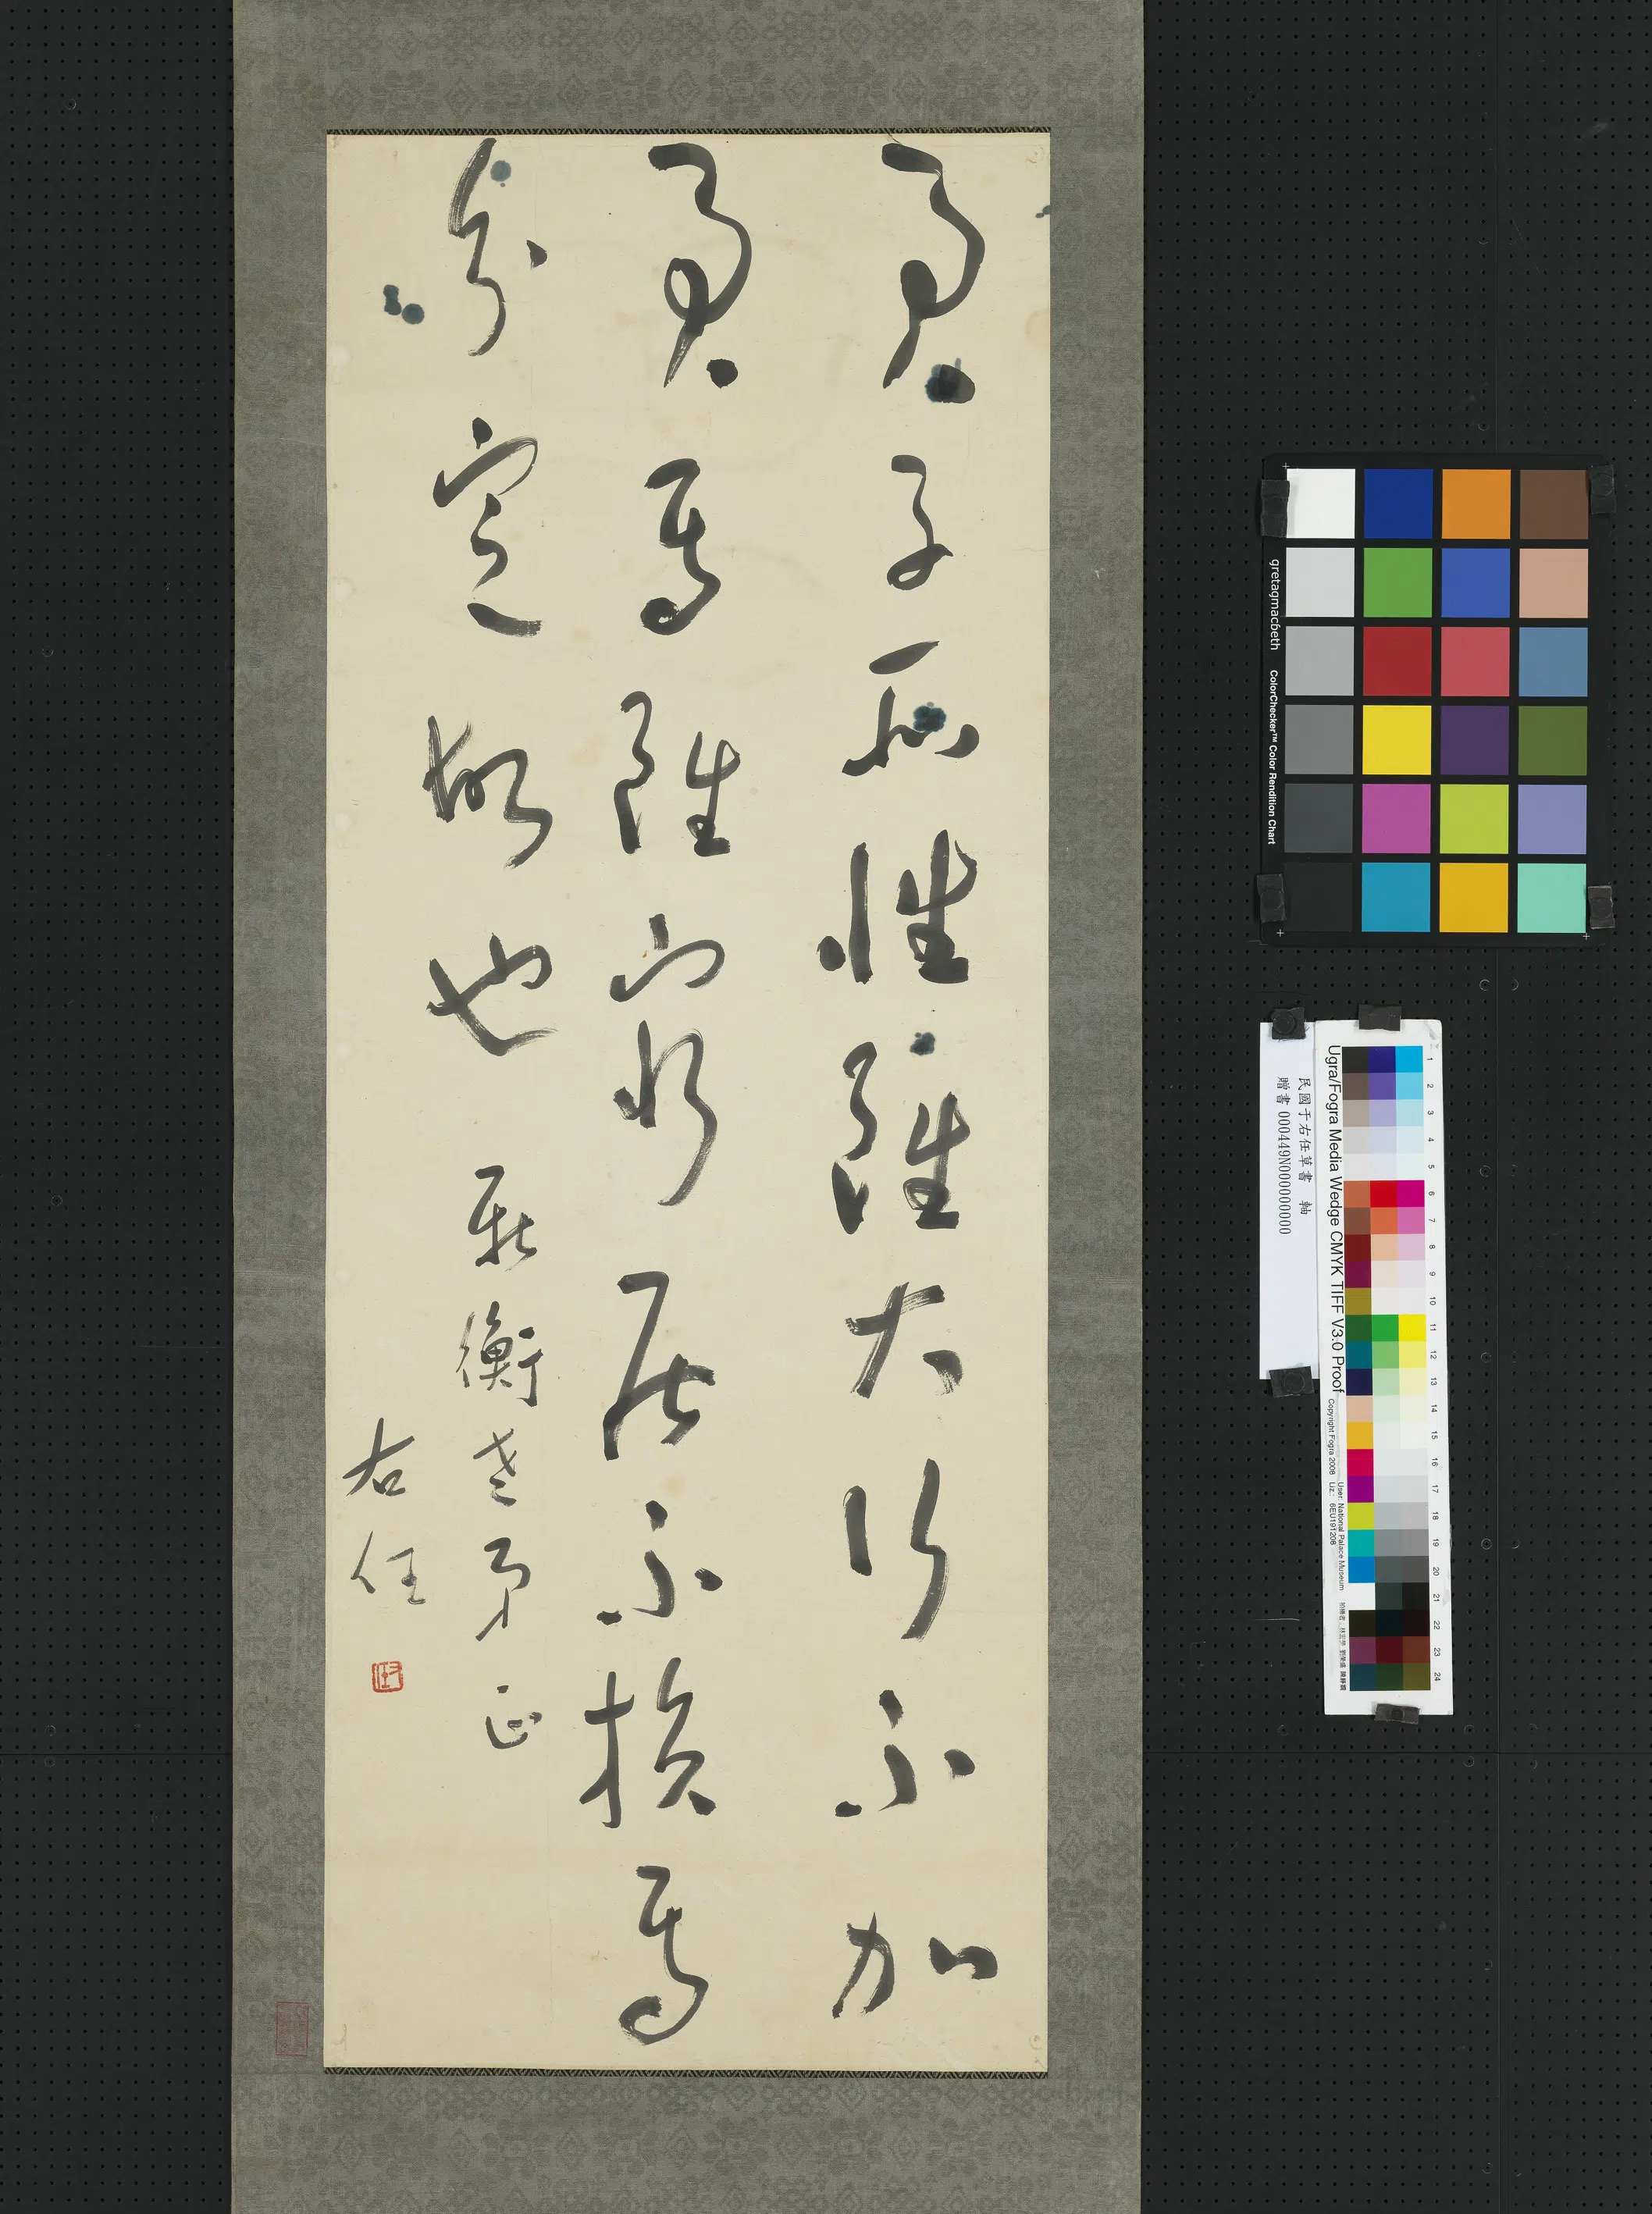 君子所性雖大行不加
君焉雖窮居不損焉
分定故也 衡老弟正
右任
民國于右任草書 軸
贈書 000449N000000000
gretagmacbeth
ColorChecker™ Color Rendition Chart
Ugra/Fogra Media Wedge CMYK TIFF V3.0 Proof
Copyright Fogra 2008
User: National Palace Museum
1
2
3
4
5
6
7
8
9
10
11
12
13
14
15
16
17
18
19
20
21
22
23
24